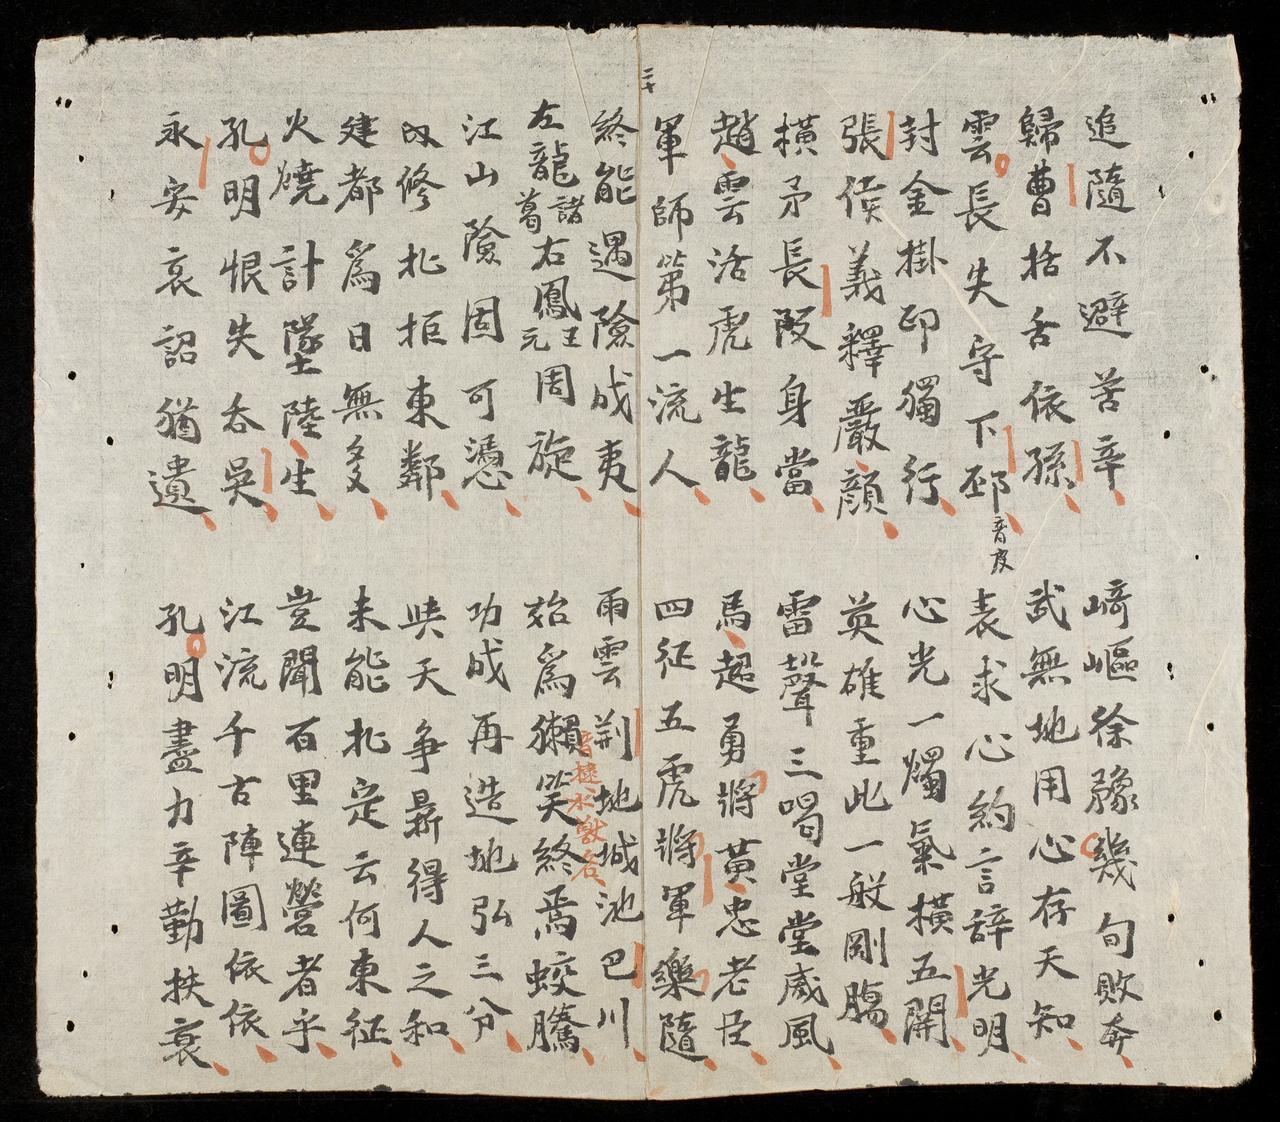 二十
追隨不避苦辛
﨑嶇徐豫幾旬敗奔
歸曹括舌依孫
武無地用心存天知
雲長失守下邳音皮
表求心約言辭光明
封金掛印獨行
心光一燭氣橫五開
張侯義釋嚴顔
英雄重此一般剛腸
橫矛長阪身當
雷聲三喝堂堂威風
趙雲活虎生龍
馬超勇將黃忠老臣
軍師第一流人
四征五虎將軍樂隨
終能遇險成夷
雨雲荆地城池巴川
左龍諸葛右鳳王元周旋
始爲獺音撻水獸名笑終焉蛟騰
江山險固可憑
功成再造地弘三分
内修北拒東鄰
與天爭鼎得人之和
建都爲日無多
未能北定云何東征
火燒計墜陸生
豈聞百里連營者乎
孔明恨失吞吳
江流千古陣圖依依
永安哀詔猶遺
孔明盡力辛勤扶衰